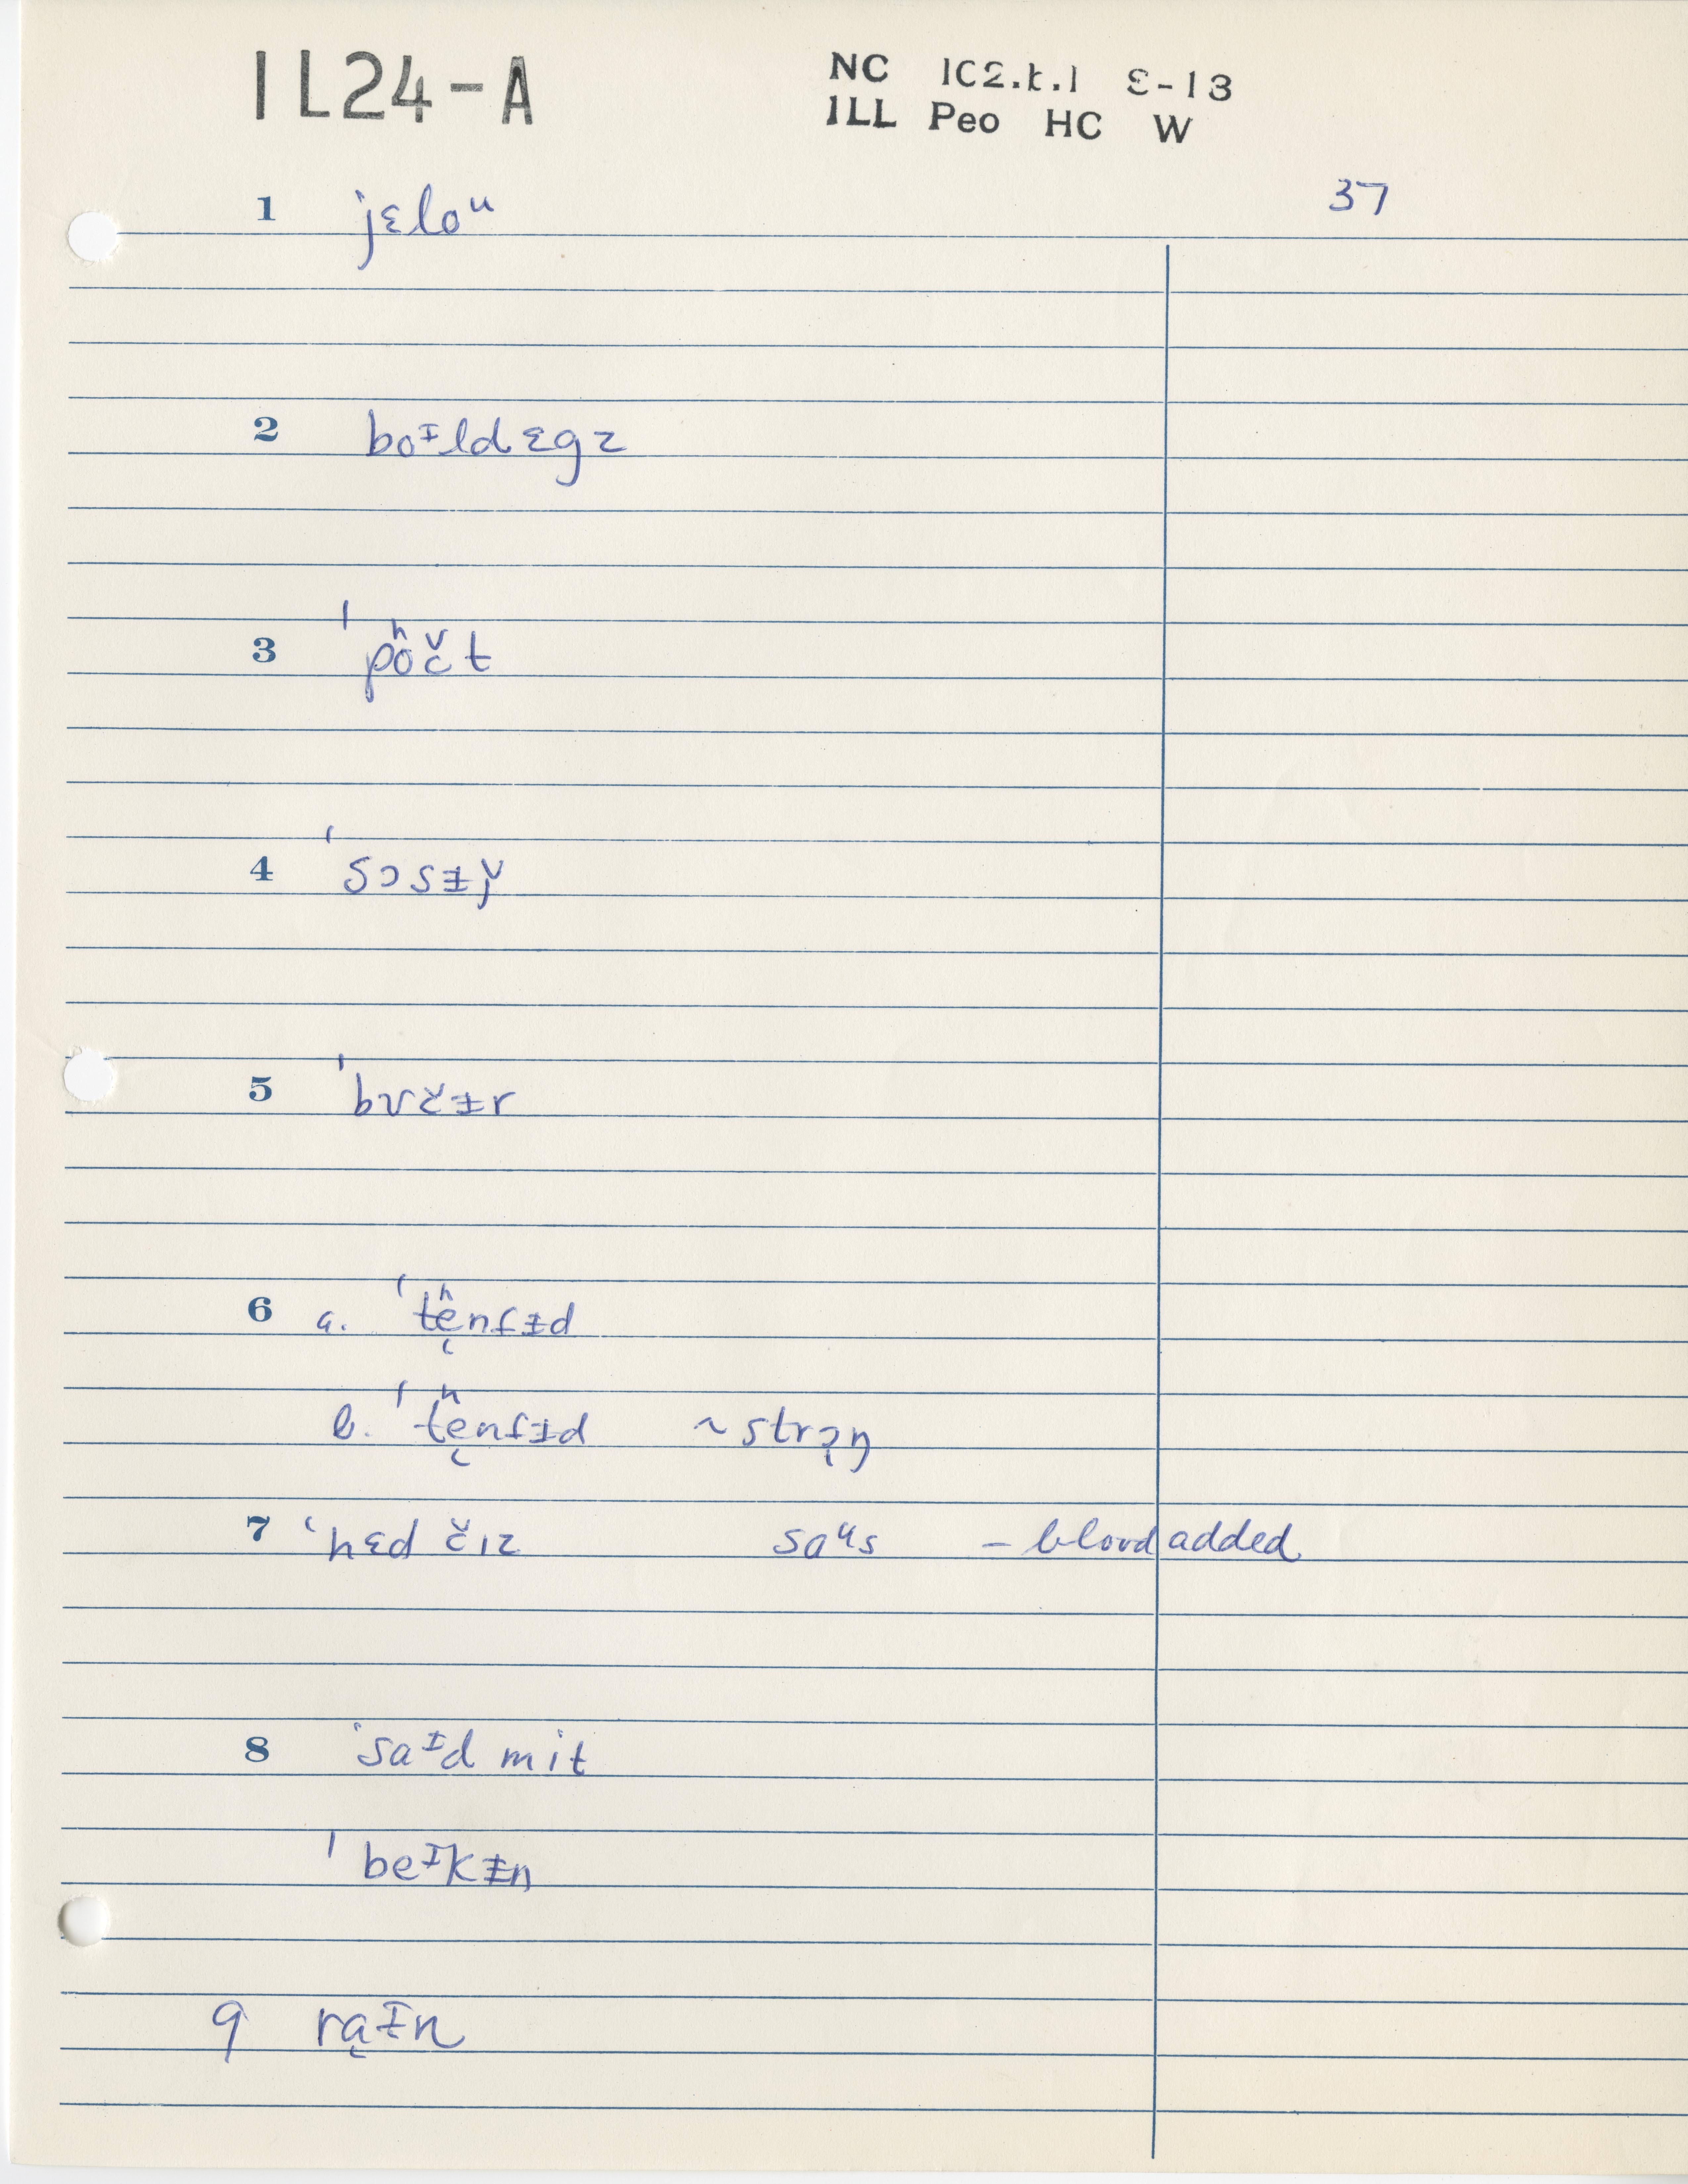 IL24-A
NC IC2.k.1 Ɛ-13
ILL Peo HC W
37
1 jɛloᵘ
2 boᶦld ɛgz
3 ˈpo̽čt
4 ˈsɔsᵻǰ
5 ˈbʊčᵻr
6 a. ˈte̽nfᵻd
b. ˈte̽nfᵻd ~ strɔŋ
7 ˈhɛd čiz saᵘs – blood added
8 ˈsaᶦd mit
ˈbeᶦkᵻn
9 raᵻn